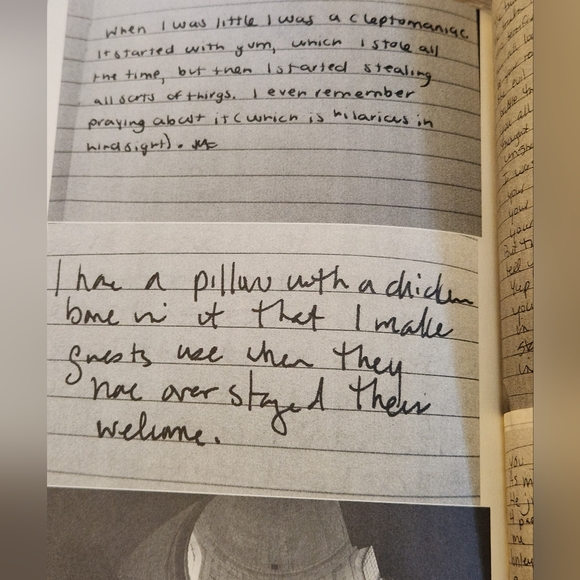 When I was little I was a cleptomaniac
It started with gum, which I stole all
the time, but then I started stealing
all sorts of things. I even remember
praying about it (which is hilarious in
hindsight).
I have a pillow with a chicken
bone in it that I make
guests use when they
have over stayed their
welcome.
you
your
your
But
you
in
you
is